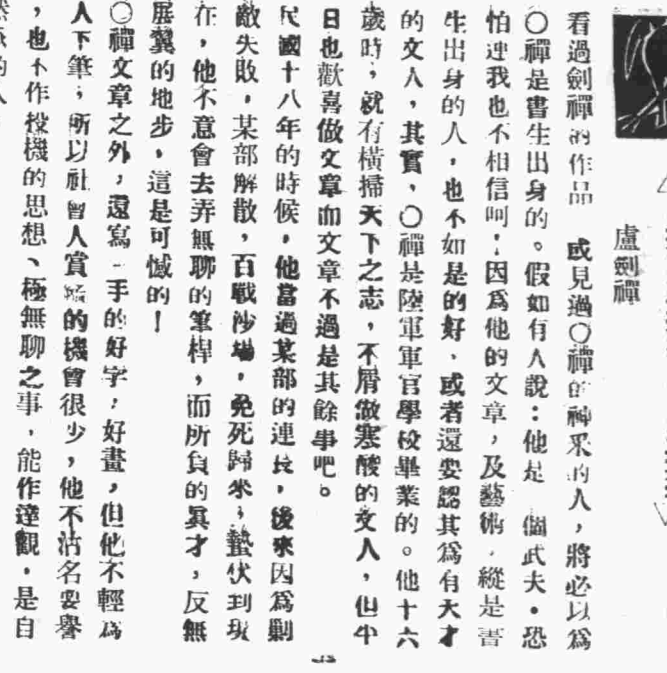 盧劍禪
看過劍禪的作品 或見過〇禪的神采的人，將必以爲
〇禪是書生出身的。假如有人說：他是 個武夫。恐
怕連我也不相信呵，因爲他的文章，及藝術，縱是書
生出身的人，也不如是的好，或者還要認其爲有天才
的文人，其實、〇禪是陸軍軍官學校畢業的。他十六
歲時，就有橫掃天下之志，不屑做寒酸的文人，但少
日也歡喜做文章而文章不過是其餘事吧。
民國十八年的時候，他當過某部的連長，後來因爲剿
敵失敗，某部解散，百戰沙場，免死歸來，蟄伏到現
在，他不意會去弄無聊的筆桿，而所負的眞才，反無
展翼的地步，這是可憾的！
〇禪文章之外，還寫一手的好字，好畫，但他不輕爲
人下筆，所以社會人賞 的機會很少，他不沽名要譽
，也不作投機的思想、極無聊之事，能作達觀，是自
的人